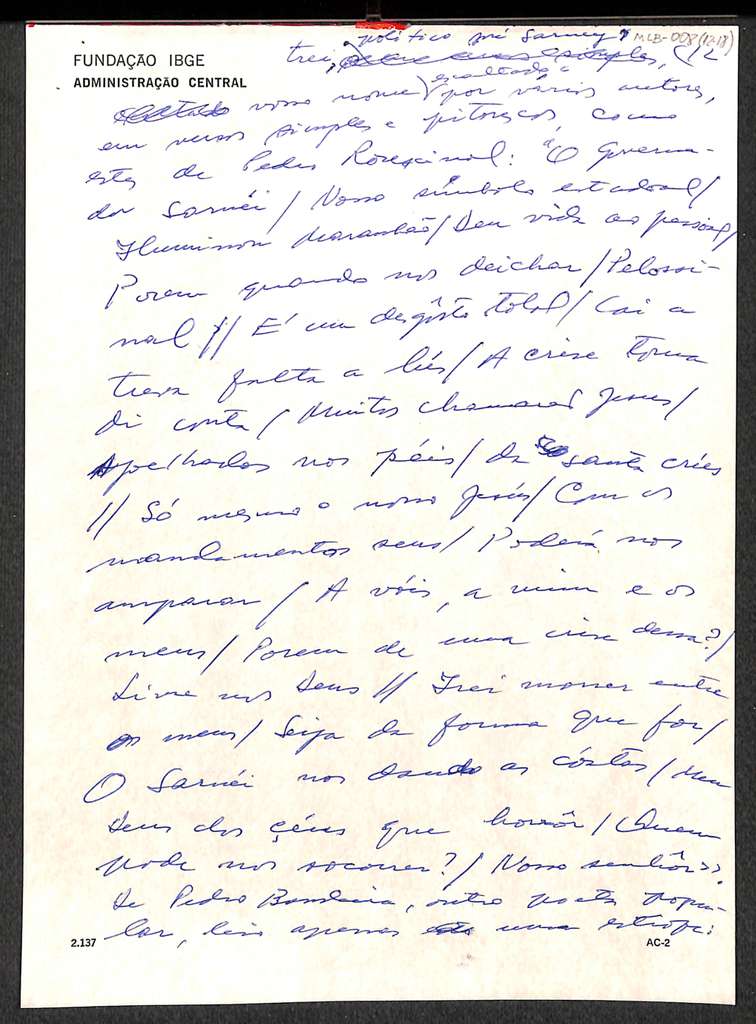 político pré Sarney? MLB-008(12.18)
FUNDAÇÃO IBGE
trei, 12
ADMINISTRAÇÃO CENTRAL
exaltado é
vosso nome por vários autores,
em versos simples e pitorescos, como
estes de Pedro: "O Governa-
dor Sarnéi / Nosso símbolo estadoal /
Iluminou Maranhão / Deu vida ao pessoal /
Porem quando nos deichar / Pelo si-
nal // É um desgôsto total / Cai a
treva falta a lús / A crise toma
di conta / Muitos chamarão Jesus /
Apoelhados nos péis / da santa crús
// Só mesmo o nosso Jesús / Com os
mandamentos seus / Poderá nos
amparar / A vóis, a mim e os
meus / Porem de uma crise dessa? /
Livre nos Deus // Irei morrer entre
os meus / Seija da forma que for /
O Sarnéi nos dando as cóstas / Meu
Deus dos çéus que horrôr / Quem
pode nos socorrer? / Nosso senhôr».
De Pedro Bandeira, outro poeta popu-
lar, leio apenas uma estrofe:
2.137 AC-2